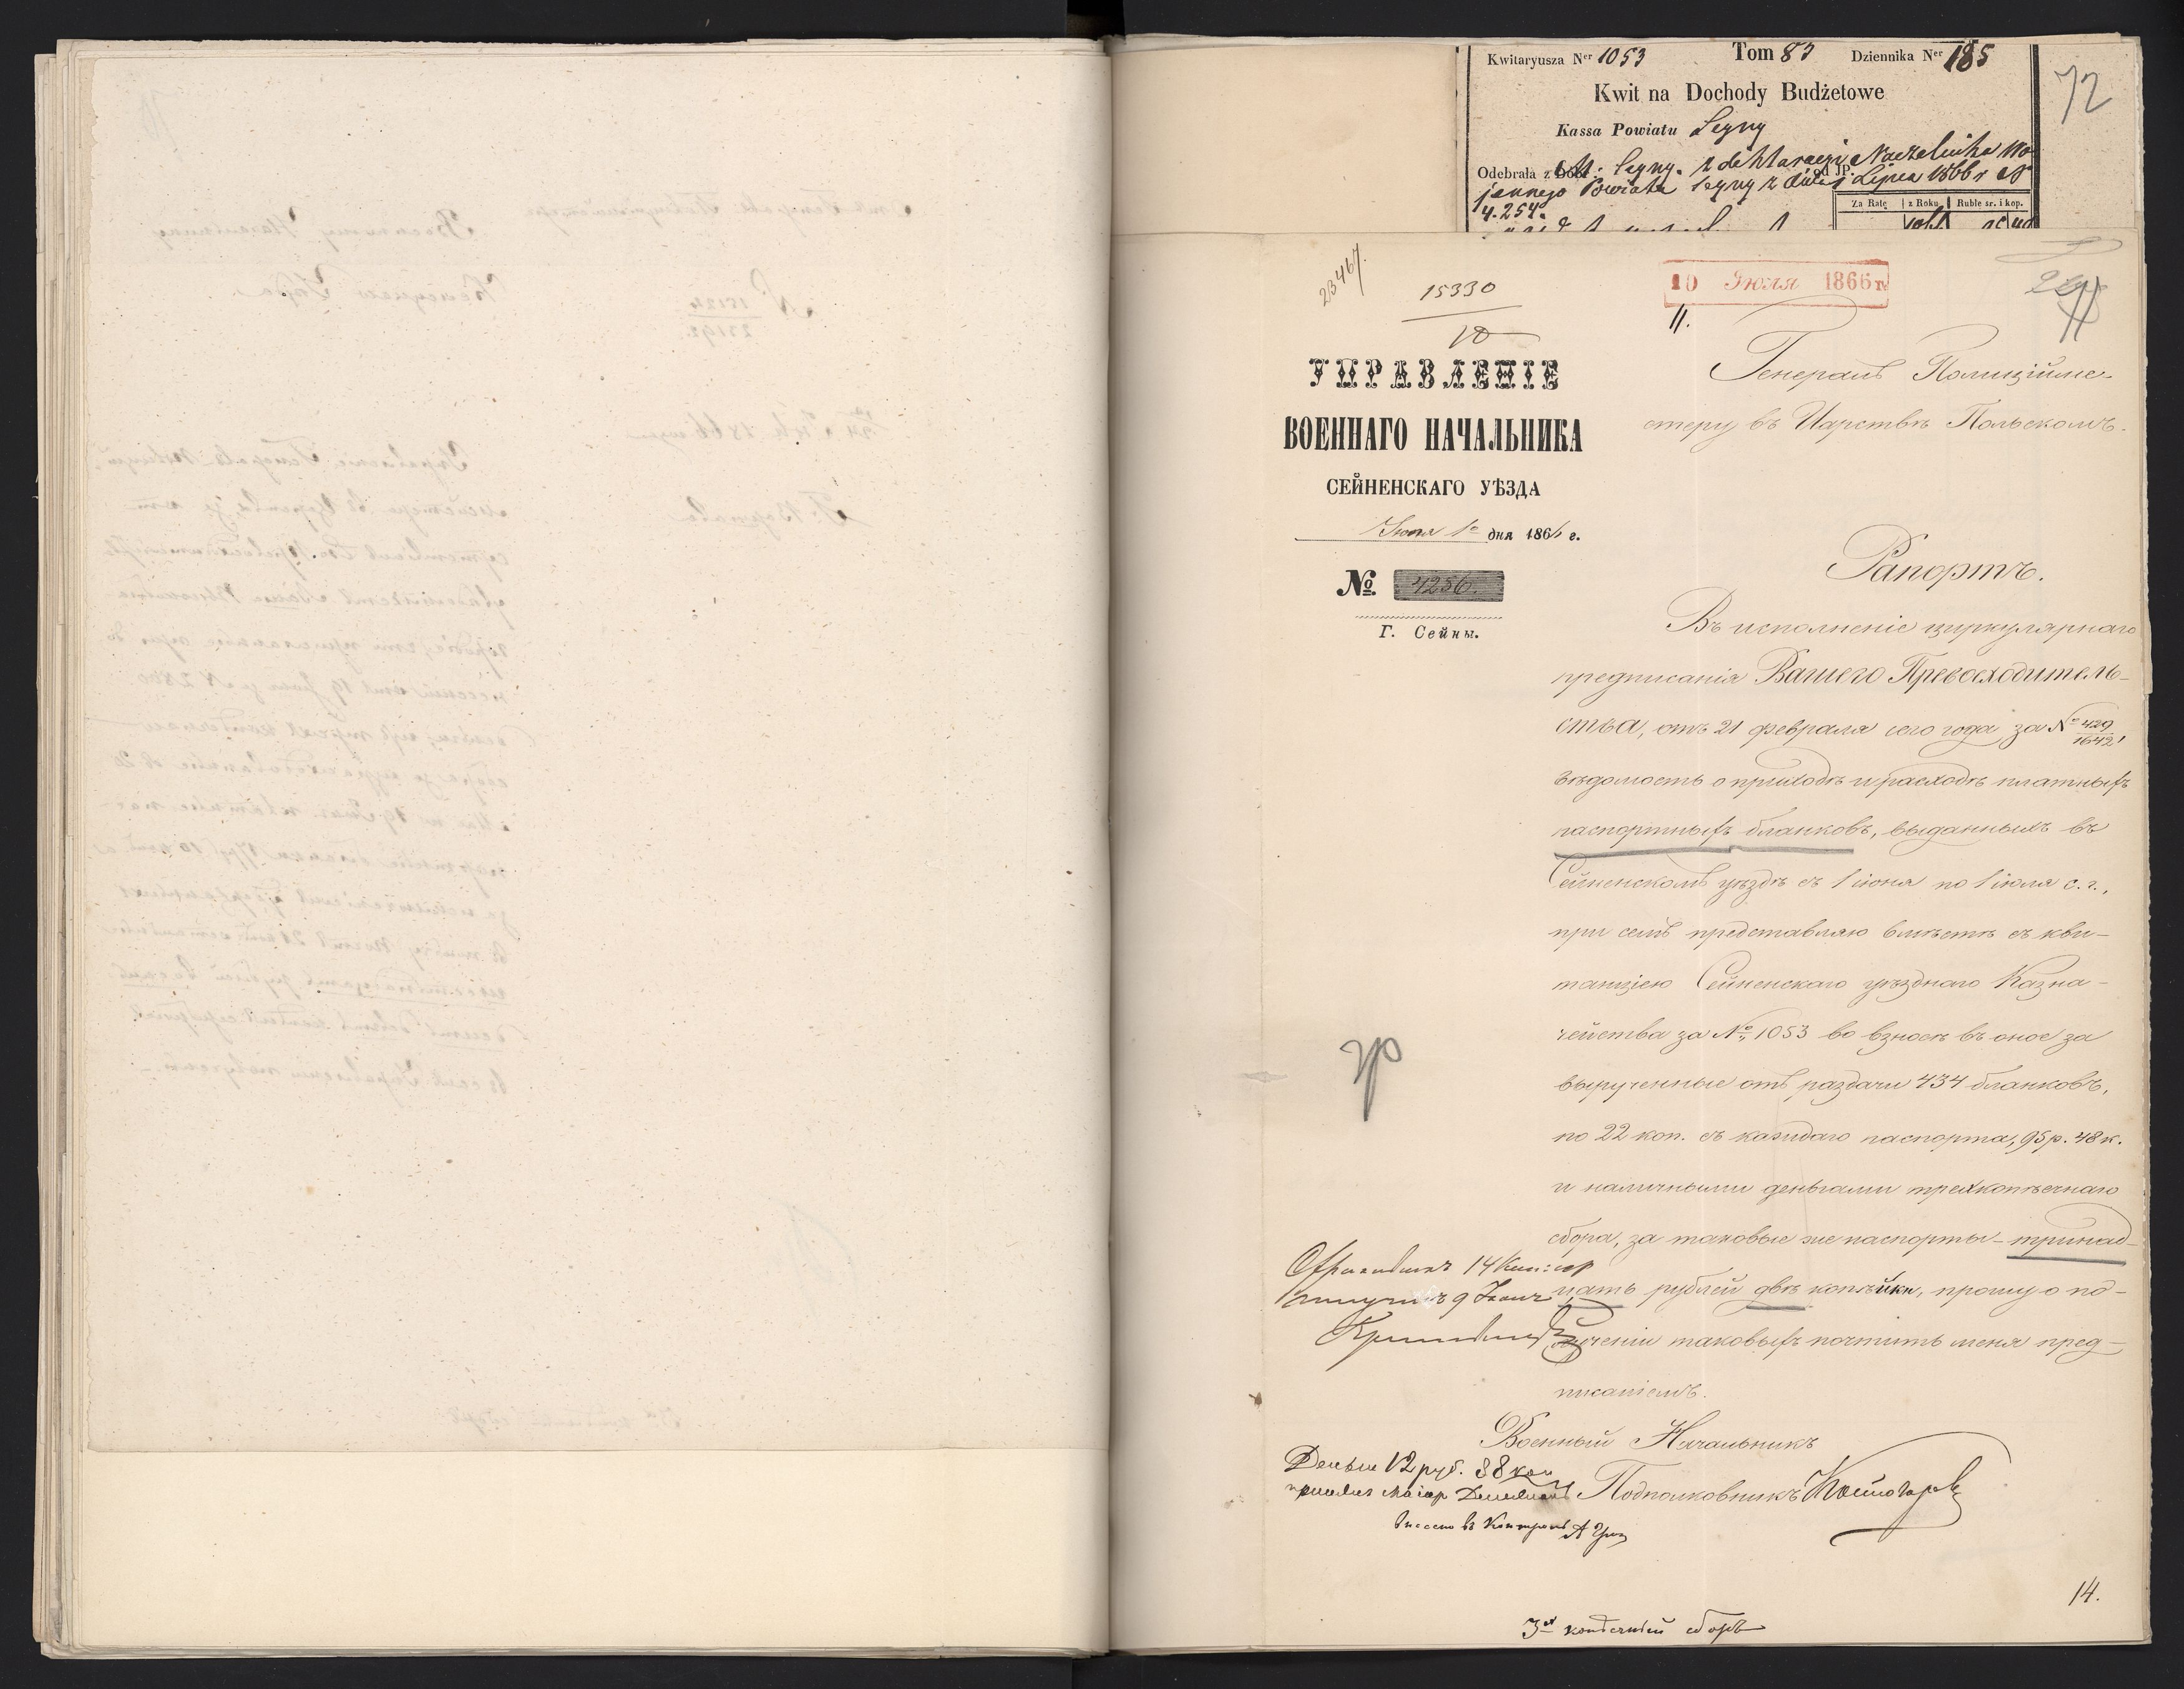 Kwitaryusza Ner 1053 Tom 83 Dziennika Ner 185
72
Kwit na Dochody Budżetowe
Kassa Powiatu Seyny
Odebrała z Dóbr od JP. Naczelnika Wo
jennego Powiatu Seyny z dnia Lipca 1866 r
4.254.
Za Ratę z Roku Ruble sr. i kop.
23467.
15330
10
10 Июля 1866 г.
11.
УПРАВЛЕНІЕ
ВОЕННАГО НАЧАЛЬНИКА
СЕЙНЕНСКАГО УѢЗДА
Іюля 1го дня 1866 г.
№ 4256.
Г. Сейны.
Генералъ Полиційме-
стеру въ Царствѣ Польскомъ.
Рапортъ.
Въ исполненіе циркулярнаго
предписанія Вашего Превосходитель-
ства, отъ 21 февраля сего года за № 429/1642,
вѣдомость о приходѣ и расходѣ платныхъ
паспортныхъ бланковъ, выданныхъ въ
Сейненскомъ уѣздѣ съ 1 іюня по 1 іюля с. г.,
при семъ представляю вмѣстѣ съ кви-
танціею Сейненскаго уѣзднаго Казна-
чейства за № 1053 во взносѣ въ оное за
вырученные отъ раздачи 434 бланковъ,
по 22 коп. съ каждаго паспорта, 95 р. 48 к.
и наличными деньгами трехкопѣечнаго
сбора, за таковые же паспорты - тринад-
цать рублей двѣ копѣйки, прошу о по-
лученіи таковыхъ почтить меня пред-
писаніемъ.
Военный Начальникъ
Подполковникъ
Деньги 12 руб. 88 коп
принялъ Маіоръ
Внесено въ Контроль
14.
3х копѣечный сборъ